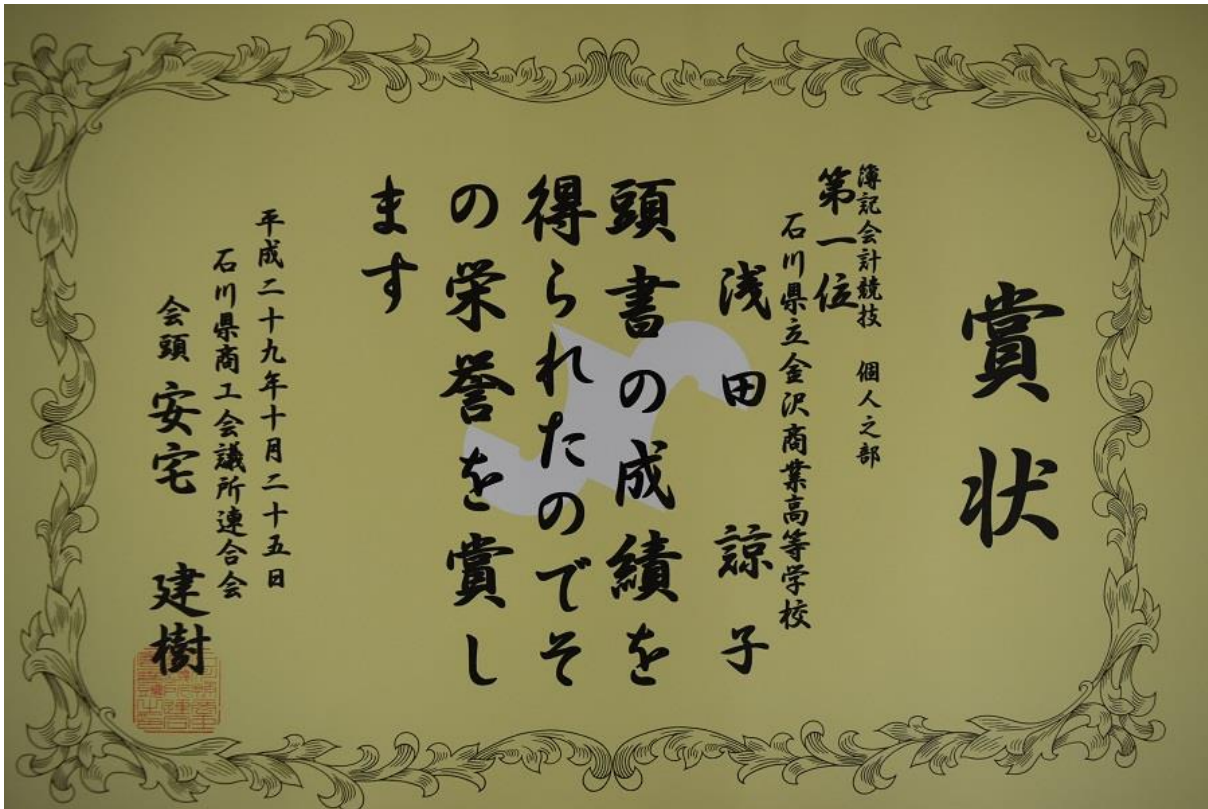 賞状
簿記会計競技 個人之部
第一位
石川県立金沢商業高等学校
浅田 諒子
頭書の成績を
得られたのでそ
の栄誉を賞し
ます
平成二十九年十月二十五日
石川県商工会議所連合会
会頭 安宅 建樹